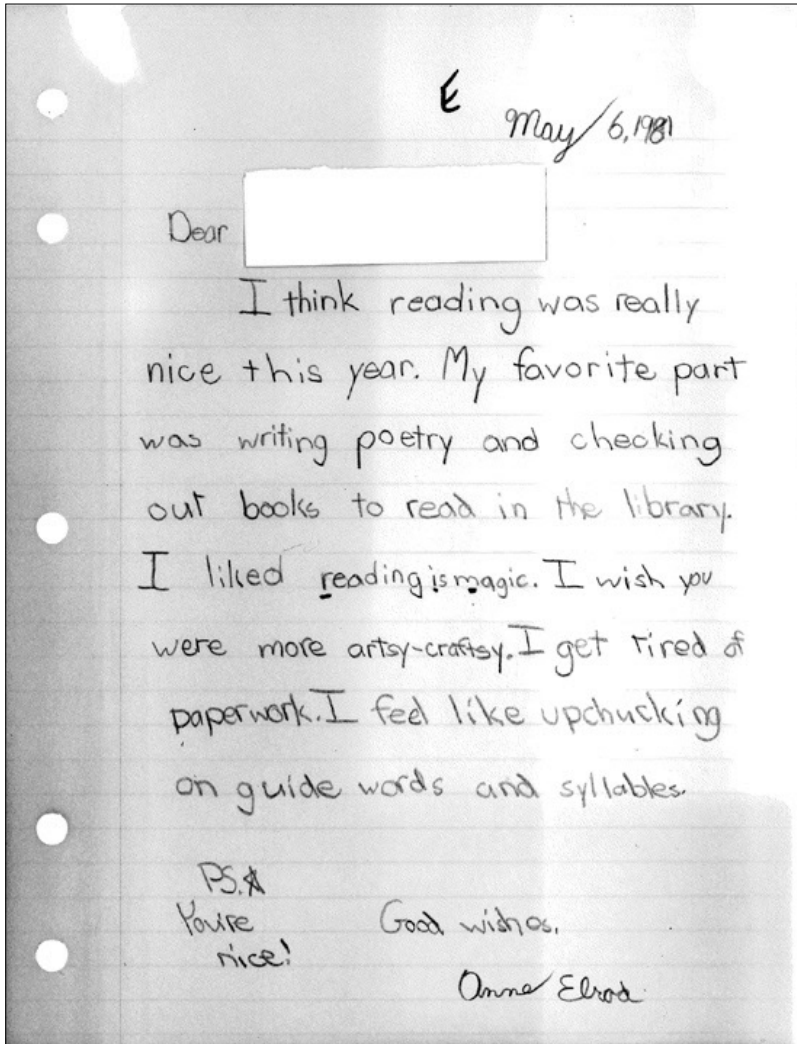 E
May 6, 1981
Dear
I think reading was really
nice this year. My favorite part
was writing poetry and checking
out books to read in the library.
I liked reading is magic. I wish you
were more artsy-craftsy. I get tired of
paperwork. I feel like upchucking
on guide words and syllables.
P.S.
You're
nice!
Good wishes,
Anne Elrod